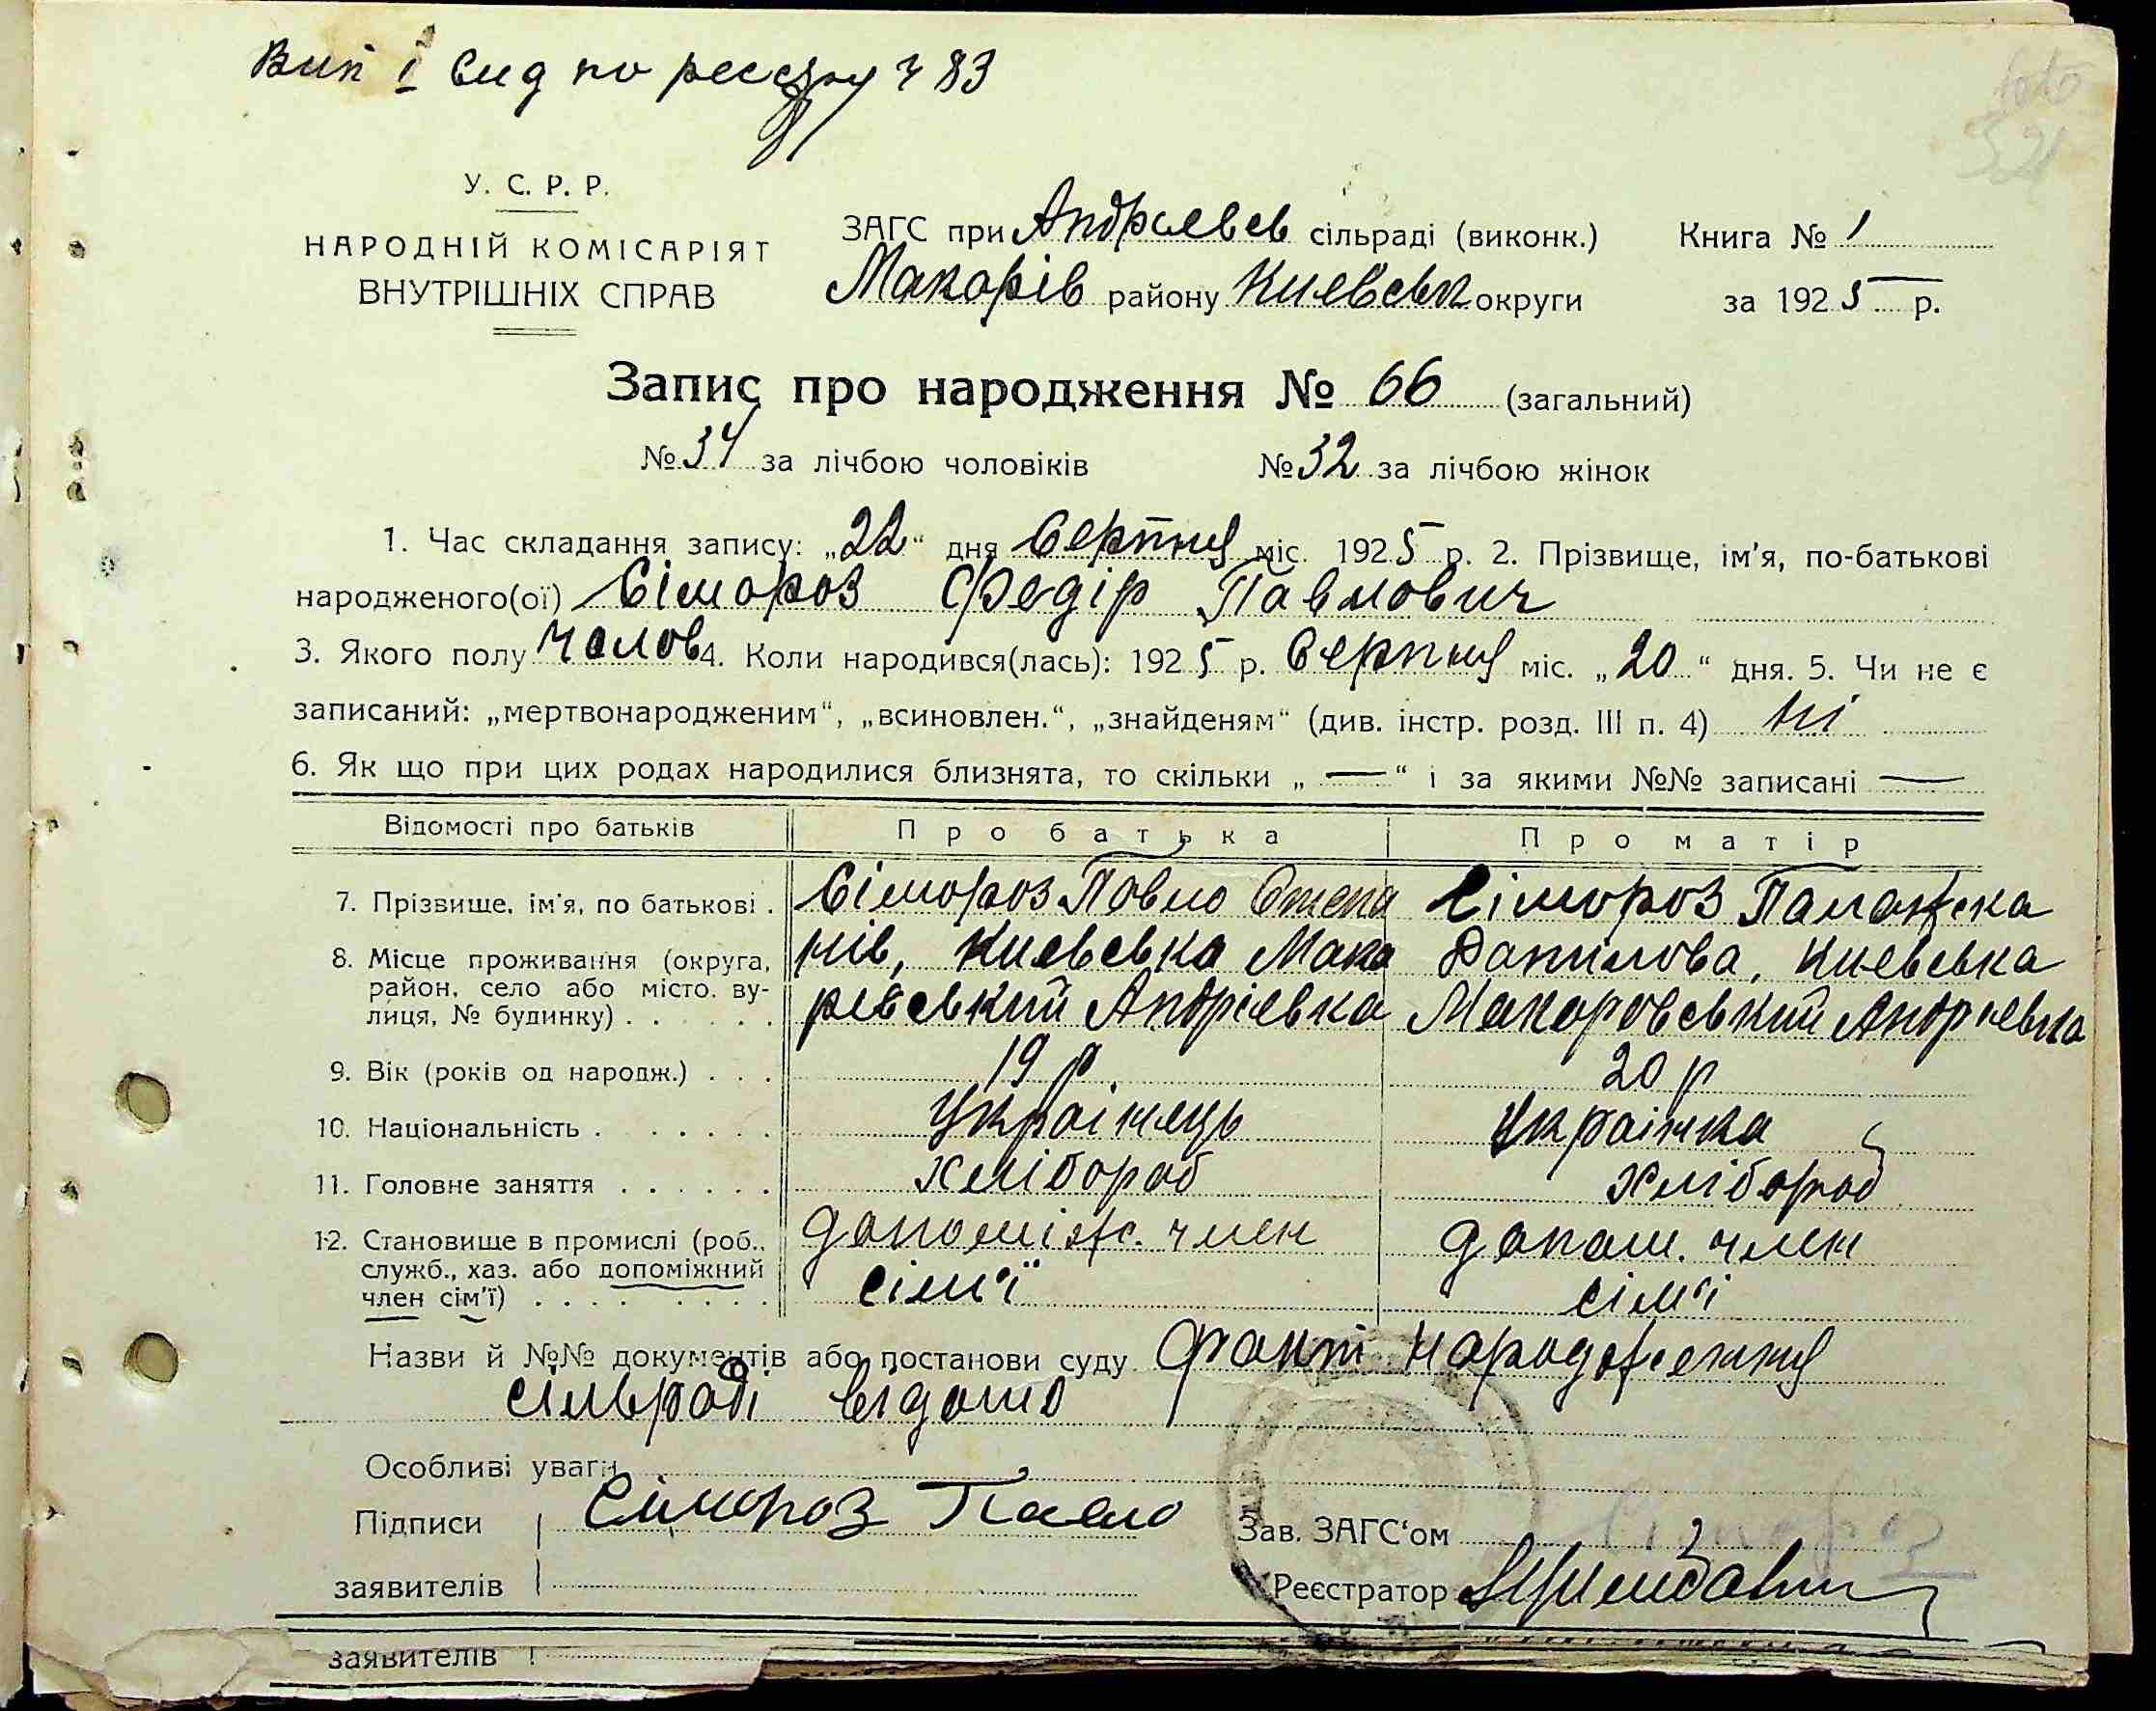 Вип і вид по реєстру ч 83
foto
521
У. С. Р. Р.
НАРОДНІЙ КОМІСАРІЯТ
ВНУТРІШНІХ СПРАВ
ЗАГС при Андрієвск сільраді (виконк.) Книга № 1
Макарів району Київськ округи за 1925 р.
Запис про народження № 66 (загальний)
№ 34 за лічбою чоловіків № 32 за лічбою жінок
1. Час складання запису: „22“ дня Серпня міс. 1925 р. 2. Прізвище, ім'я, по-батькові
народженого(ої) Сімороз Федір Павлович
3. Якого полу чолов 4. Коли народився(лась): 1925 р. Серпня міс. „20“ дня. 5. Чи не є
записаний: „мертвонародженим“, „всиновлен.“, „знайденям“ (див. інстр. розд. III п. 4) ні
6. Як що при цих родах народилися близнята, то скільки „—“ і за якими №№ записані —
Відомості про батьків Про батька Про матір
7. Прізвище, ім'я, по батькові . Сімороз Павло Степа Сімороз Палажка
8. Місце проживання (округа, нів, Киевська Мака Данилова, Киевська
район, село або місто, ву-
лиця, № будинку) . . . . . рівський Андрієвка Макаровський Андрієвка
9. Вік (років од народж.) . . . 19 р. 20 р
10. Національність . . . . . . . Українець Українка
11. Головне заняття . . . . . . хлібороб хлібороб
12. Становище в промислі (роб., допоміж. член допом. член
служб., хаз. або допоміжний
член сім'ї) . . . . . . . . сім'ї сім'ї
Назви й №№ документів або постанови суду Факт народження
сільраді відомо
Особливі уваги
Підписи Сімороз Павло Зав. ЗАГС'ом Сімороз
заявителів Реєстратор
заявителів